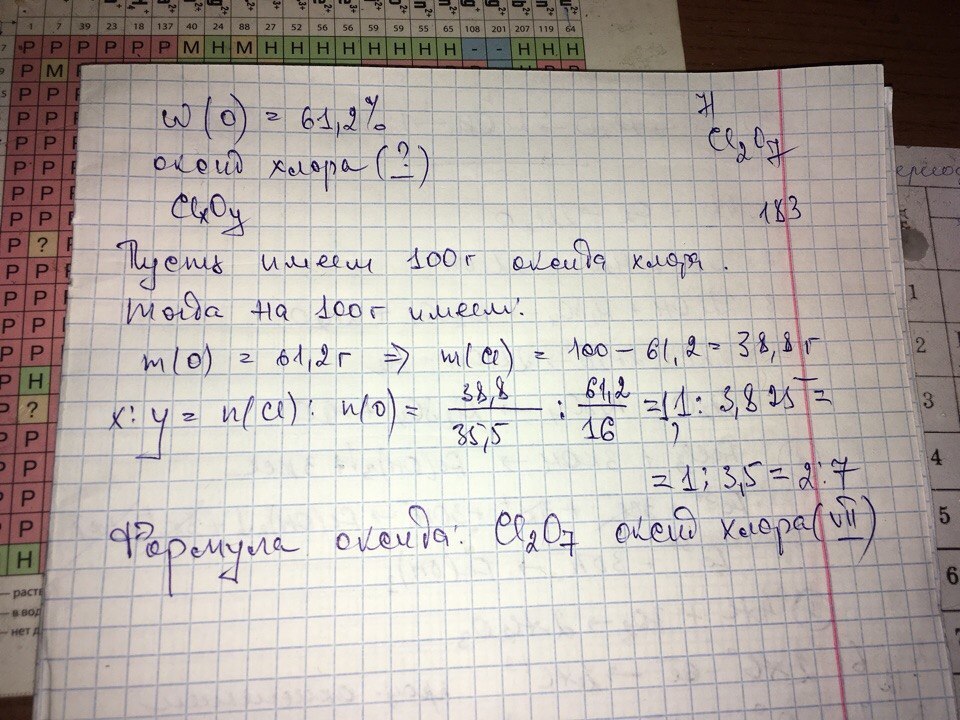 1 39 23 18 137 40 24 88 27 52 56 56 59 59 55 65 108 201 207 119 64
Р Р Р Р Р Р М Н М Н Н Н Н Н Н Н Н - - Н Н Н
ω(O) = 61,2%
оксид хлора (?)
ClxOy
7
Cl2O7
183
Пусть имеем 100г оксида хлора.
Тогда на 100г имеем:
m(O) = 61,2г => m(Cl) = 100 - 61,2 = 38,8 г
x:y = n(Cl) : n(O) = 38,8/35,5 : 61,2/16 = 1,1 : 3,825 =
= 1 : 3,5 = 2:7
Формула оксида: Cl2O7 оксид хлора (VII)
Р М
Р
Р
Р
Р ?
Р Н
Р ?
Н
— раст
— в вод
— нет д
1
2
3
4
5
6